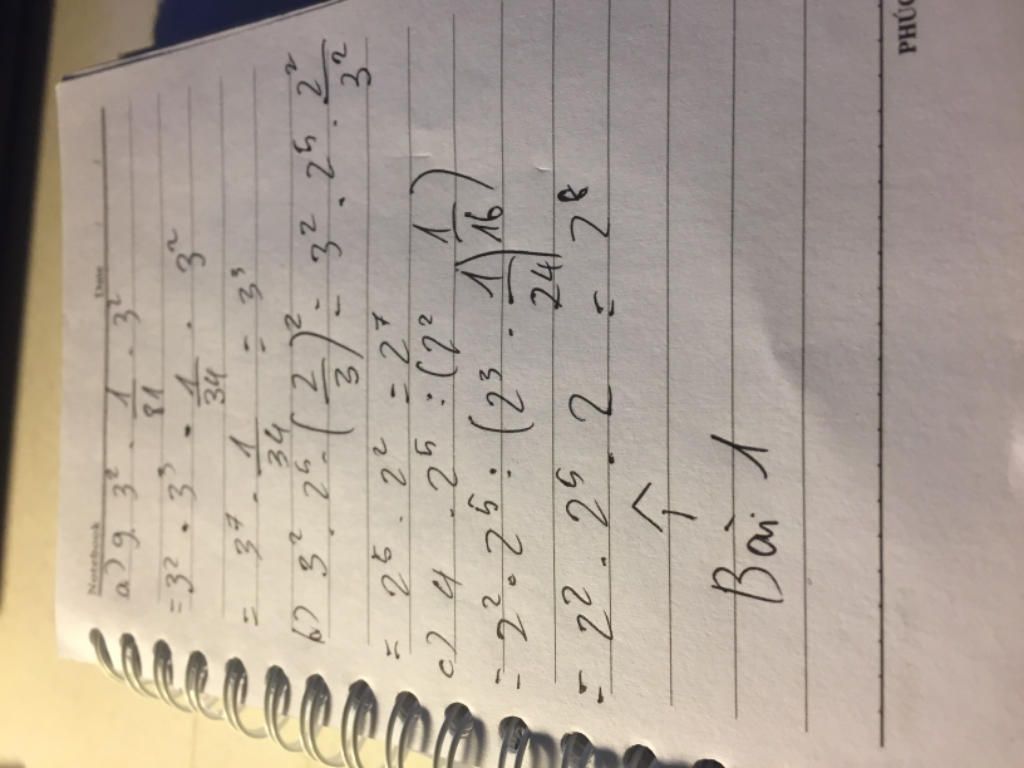 Notebook Date
a) 9. 3² . 1/81 . 3²
= 3² . 3³ . 1/34 . 3²
= 3⁷ . 1/34 = 3³
b) 3² . 2⁵ . (2/3)² = 3² . 2⁵ . 2²/3²
= 2⁵ . 2² = 2⁷
c) 4 . 2⁵ : (2² 1/16)
= 2² . 2⁵ : (2³ . 1/24)
= 22 . 2⁵ . 2 = 2⁸
↑
Bài 1
PHÚC